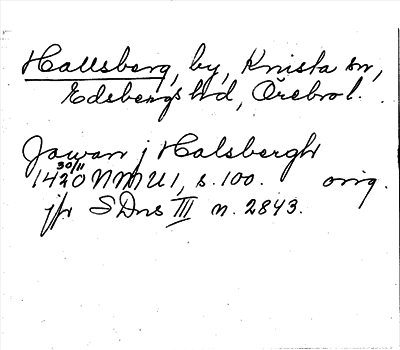 Hallsberg, by, Knista sn,
Edsbergs hd, Örebro l.
Jawan j Halsbergh
30/11
1420 NMU 1, s. 100. orig.
jfr SDns III n. 2843.